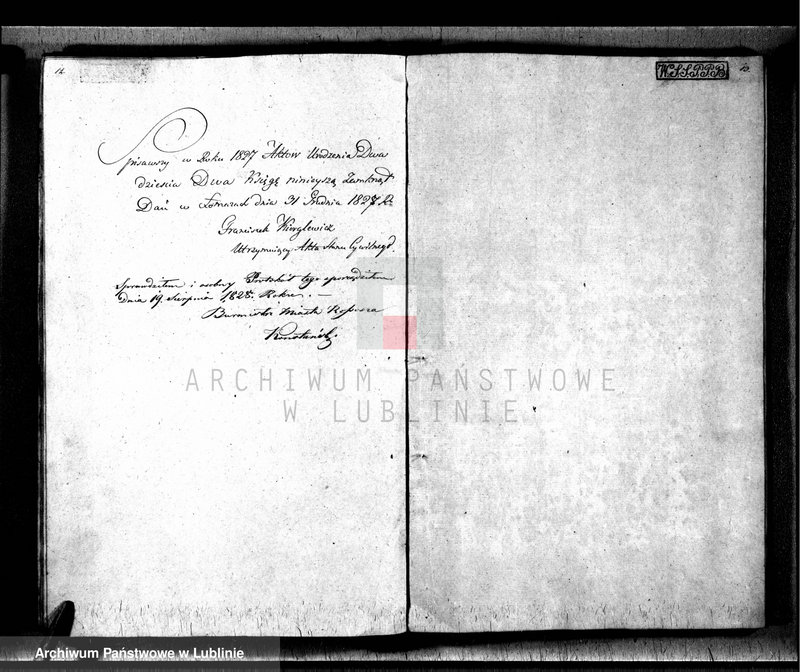 14
Spisawszy w Roku 1827 Aktow Urodzenia Dwa
dziescia Dwa Księgę ninieyszą Zamknąt
Dań w Łomazach dnia 31 Grudnia 1827 R
Franciszek
Utrzymuiący Akta Stanu Cywilnego.
Sprawdziłem i osobny Protokół tego sporządziłem
Dnia 19. Sierpnia 1828. Roku. —
Burmistrz Miasta Rossosza
W.S.S.P.P.B
ARCHIWUM PAŃSTWOWE
W LUBLINIE
Archiwum Państwowe w Lublinie